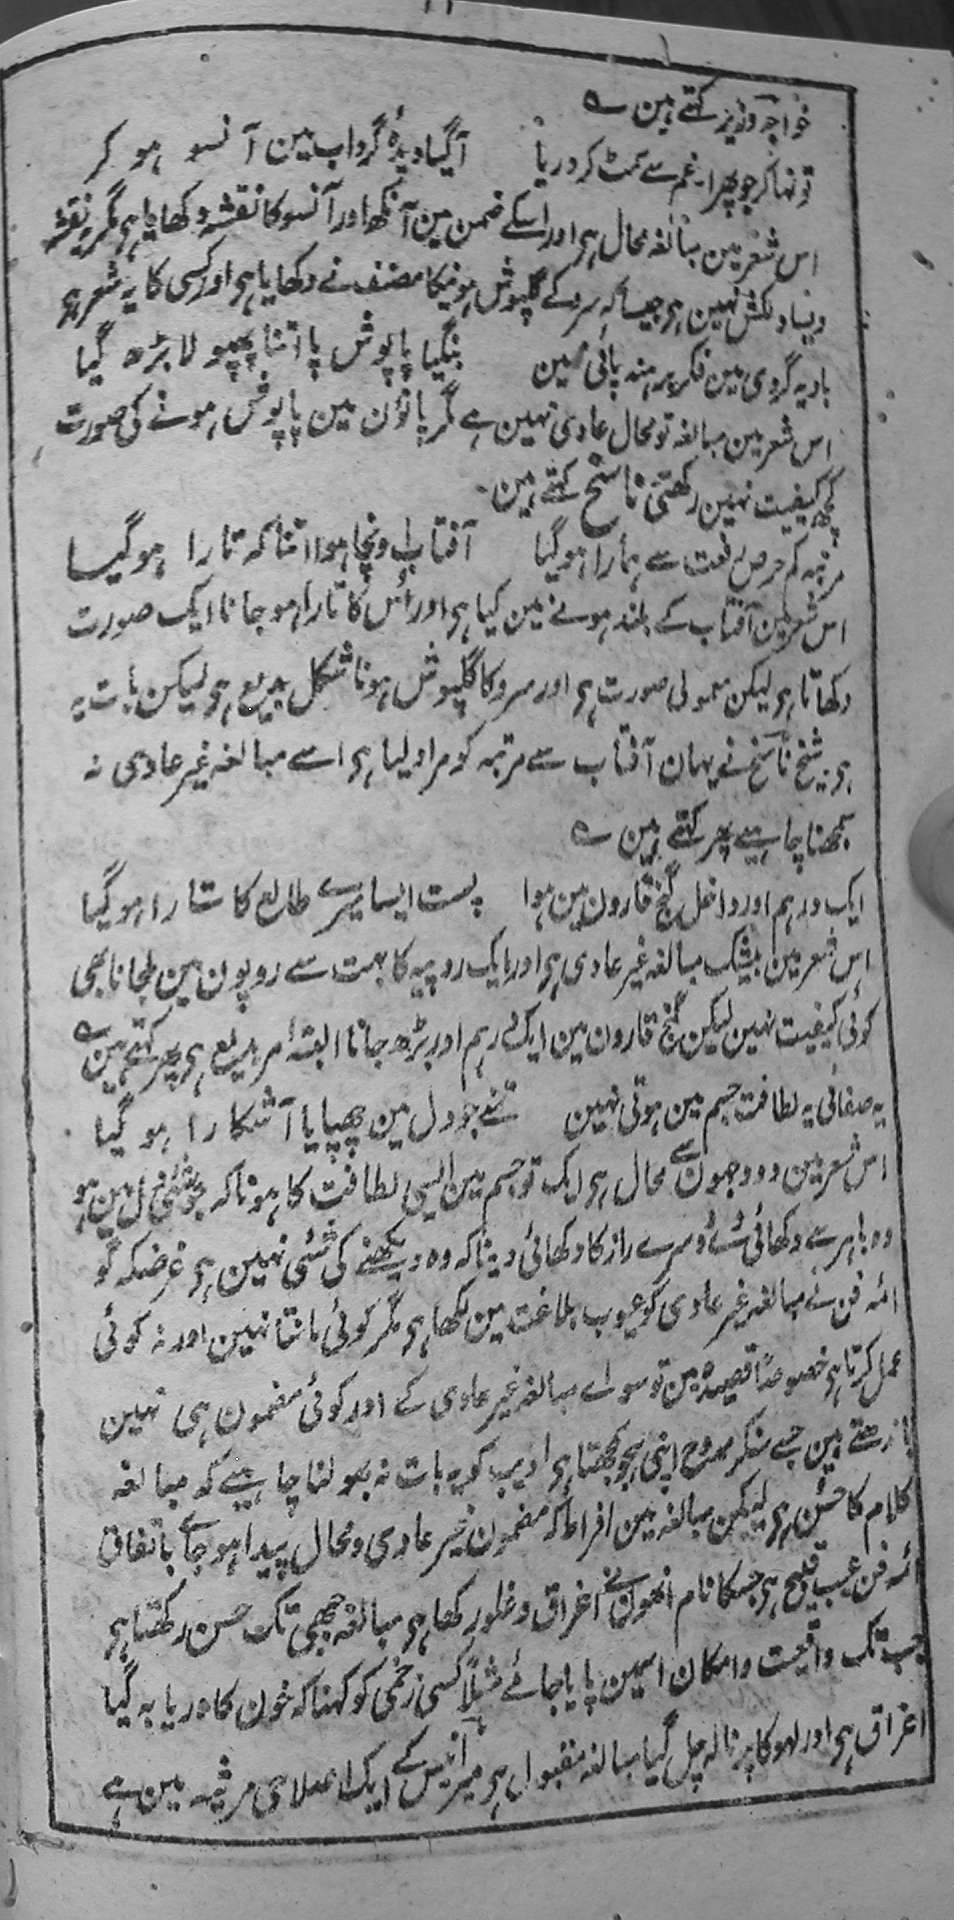 خواجہ وزیر کہتے ہین ؎
تو نہا کر جو پھرا غم سے سمٹ کر دریا آگیا دیدۂ گرداب مین آنسو ہو کر
اس شعر مین مبالغہ محال ہی اور اسکے ضمن مین آنکھ اور آنسو کا نقشہ دکھایا ہی مگر یہ نقشہ
ویسا دلکش نہین ہی جیسا کہ سرو کے گلپوش ہونیکا مصنف نے دکھایا ہی اور کسی کا یہ شعر ہی
بادیہ گردی مین فکر برہنہ پائی نہین بنگیا پاپوش پا اتنا پھپولا بڑھ گیا
اس شعر مین مبالغہ تو محال عادی نہین ہے مگر پانؤن مین پاپوش ہونے کی صورت
کچھ کیفیت نہین رکھتی ناسخ کہتے ہین
مرتبہ کم حرص رفعت سے ہمارا ہو گیا آفتاب اونچا ہوا اتنا کہ تارا ہو گیا
اس شعر مین آفتاب کے بلند ہونے مین کیا ہی اور اُس کا تارا ہو جانا ایک صورت
دکھاتا ہی لیکن معمولی صورت ہی اور سرو کا گلپوش ہونا شکل بدیع ہی لیکن بات یہ
ہی شیخ ناسخ نے یہان آفتاب سے مرتبہ کو مراد لیا ہی اسے مبالغہ غیر عادی نہ
سمجھنا چاہیے پھر کہتے ہین ؎
ایک درہم اور داخل گنج قارون مین ہوا پست ایسا میرے طالع کا ستارا ہو گیا
اس شعر مین بیشک مبالغہ غیر عادی ہی اور ایک روپیہ کا بہت سے روپون مین ملجانا بھی
کوئی کیفیت نہین لیکن گنج قارون مین ایک درہم اور بڑھ جانا البتہ امر بدیع ہی پھر کہتے ہین ؎
یہ صفائی یہ لطافت جسم مین ہوتی نہین تمنے جو دل مین چھپایا آشکارا ہو گیا
اس شعر مین دو وجہون سے محال ہی ایک تو جسم مین ایسی لطافت کا ہونا کہ جو شئی دل مین ہو
وہ باہر سے دکھائی دے دوسرے راز کا دکھائی دینا کہ وہ دیکھنے کی شئی نہین ہی غرضکہ گو
ائمہ فن نے مبالغہ غیر عادی کو عیوب بلاغت مین لکھا ہی مگر کوئی مانتا نہین اور نہ کوئی
عمل کرتا ہی خصوصاً قصیدہ مین تو سواے مبالغہ غیر عادی کے اور کوئی مضمون ہی نہین
باندھتے ہین جسے سنکر ممدوح اپنی ہجو سمجھتا ہی ادیب کو یہ بات نہ بھولنا چاہیے کہ مبالغہ
کلام کا حُسن ہی لیکن مبالغہ مین افراط کہ مضمون غیر عادی و محال پیدا ہو جائے باتفاق
ائمہ فن عیب قبیح ہی جسکا نام انھون نے اغراق و غلو رکھا ہی مبالغہ جبھی تک حسن رکھتا ہی
جب تک واقعیت و امکان اسمین پایا جائے مثلاً کسی زخمی کو کہنا کہ خون کا دریا بہ گیا
اغراق ہی اور لہو کا پرنالہ چل گیا مبالغہ مقبول ہی میر انیس کے ایک اصلاحی مرثیہ مین ہے